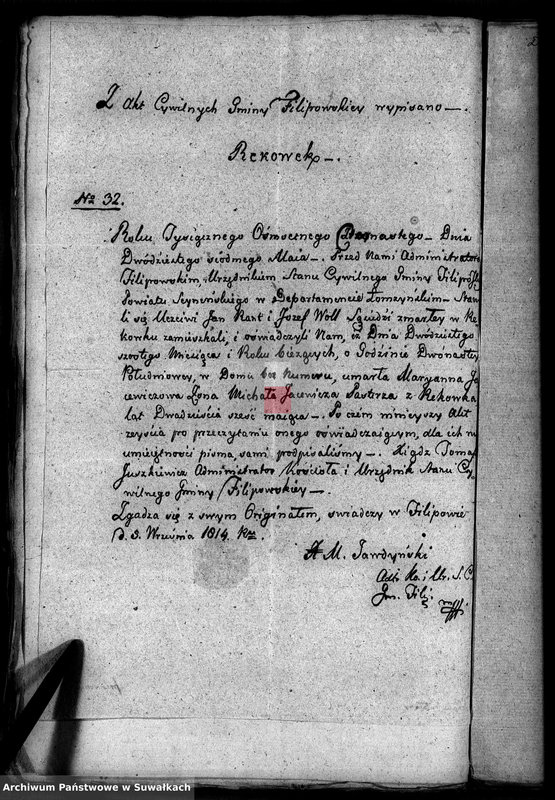 Z Akt Cywilnych Gminy Filipowskiey wypisano —.
Rekowek —.
No 32.
Roku Tysiącznego Osmsetnego Dnia
Dwódziestego siódmego Maia —. Przed Nami Administratorem
Filipowskim, Urzędnikiem Stanu Cywilnego Gminy Filipowskiey
Powiatu Seyneńskiego w Departamencie Łomzyńskim — Stawi-
li się Uczciwi Jan Kant i Jozef Woll Sąsiedzi zmarłey w Re-
kowku zamieszkali, i oswiadczyli Nam, iż Dnia Dwódziestego
szóstego Miesiąca i Roku bieżących, o Godzinie Dwonastey
Południowey, w Domu bez Numeru, umarła Maryanna Ja-
cewiczowa Zona Michała Jacewicza Pasterza z Rekowka
lat Dwadzieścia sześć maiąca —. Po czem ninieyszy Akt
po przeczytaniu onego oświadczaiącym, dla ich nie
umieiętności pisma, sami podpisaliśmy —. Xiądz Tomasz
Juszkiewicz Administrator Kościoła i Urzędnik Stanu Cy-
wilnego Gminy Filipowskiey —.
Zgadza się z swym Originałem, swiadczy w Filipowie
d. 3. Września 1814. Ru
X M. Jawdyński
Adm. Ko. i Ur. S. C.
Gm. Fili.
Archiwum Państwowe w Suwałkach